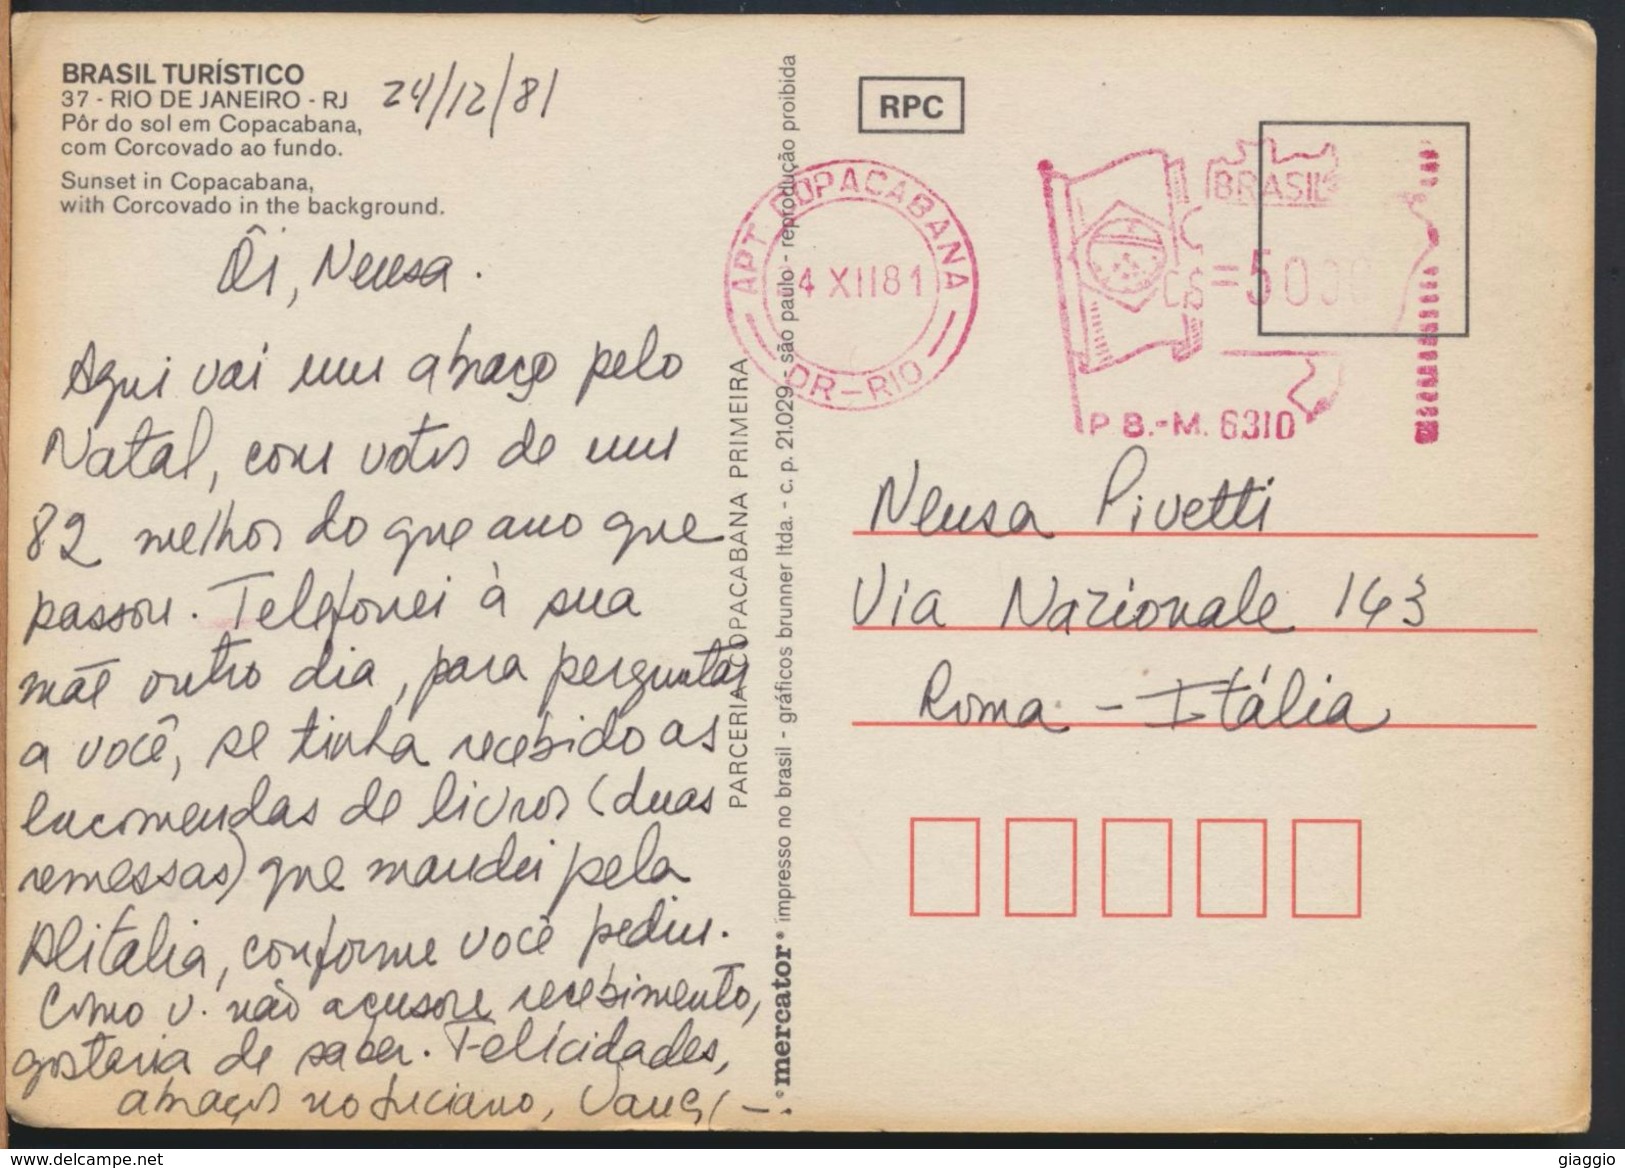 BRASIL TURÍSTICO
37 - RIO DE JANEIRO - RJ
Pôr do sol em Copacabana,
com Corcovado ao fundo.
Sunset in Copacabana,
with Corcovado in the background.
24/12/81
Ôi, Neusa.
Aqui vai um abraço pelo
Natal, com votos de um
82 melhor do que ano que
passou. Telefonei à sua
mãe outro dia, para perguntar
a você, se tinha recebido as
encomendas de livros (duas
remessas) que mandei pela
Alitalia, conforme você pediu.
Como v. não acusou recebimento,
gostaria de saber. Felicidades,
abraços no Luciano,
PARCERIA COPACABANA PRIMEIRA
•mercator• impresso no brasil - gráficos brunner ltda. - c. p. 21.029 - são paulo - reprodução proibida
RPC
APT COPACABANA
4 XII 81
DR-RIO
BRASIL
=50
P B.-M. 6310
Neusa Pivetti
Via Nazionale 163
Roma - Itália
delcampe.net
giaggio